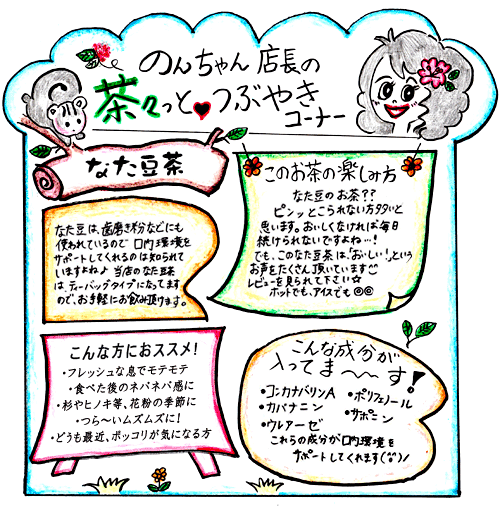 のんちゃん店長の
茶々っと♥つぶやき
コーナー
なた豆茶
なた豆は、歯磨き粉などにも
使われているので口内環境を
サポートしてくれるのは知られて
いますよね♪当店のなた豆茶
は、ティーバッグタイプになってます
ので、お手軽にお飲み頂けます。
このお茶の楽しみ方
なた豆のお茶??
ピンッとこられない方多いと
思います。おいしくなければ毎日
続けられないですよね…!
でも、このなた豆茶は「おいしい!」という
お声をたくさん頂いています
レビューを見られて下さい☆
ホットでも、アイスでも◎◎
こんな方におススメ!
・フレッシュな息でモテモテ
・食べた後のネバネバ感に
・杉やヒノキ等、花粉の季節に
・つら~いムズムズに!
・どうも最近、ポッコリが気になる方
こんな成分が
入ってま~~す!
•コンカナバリンA •ポリフェノール
•カバナニン •サポニン
•ウレアーゼ
これらの成分が口内環境を
サポートしてくれます(^o^)ノ